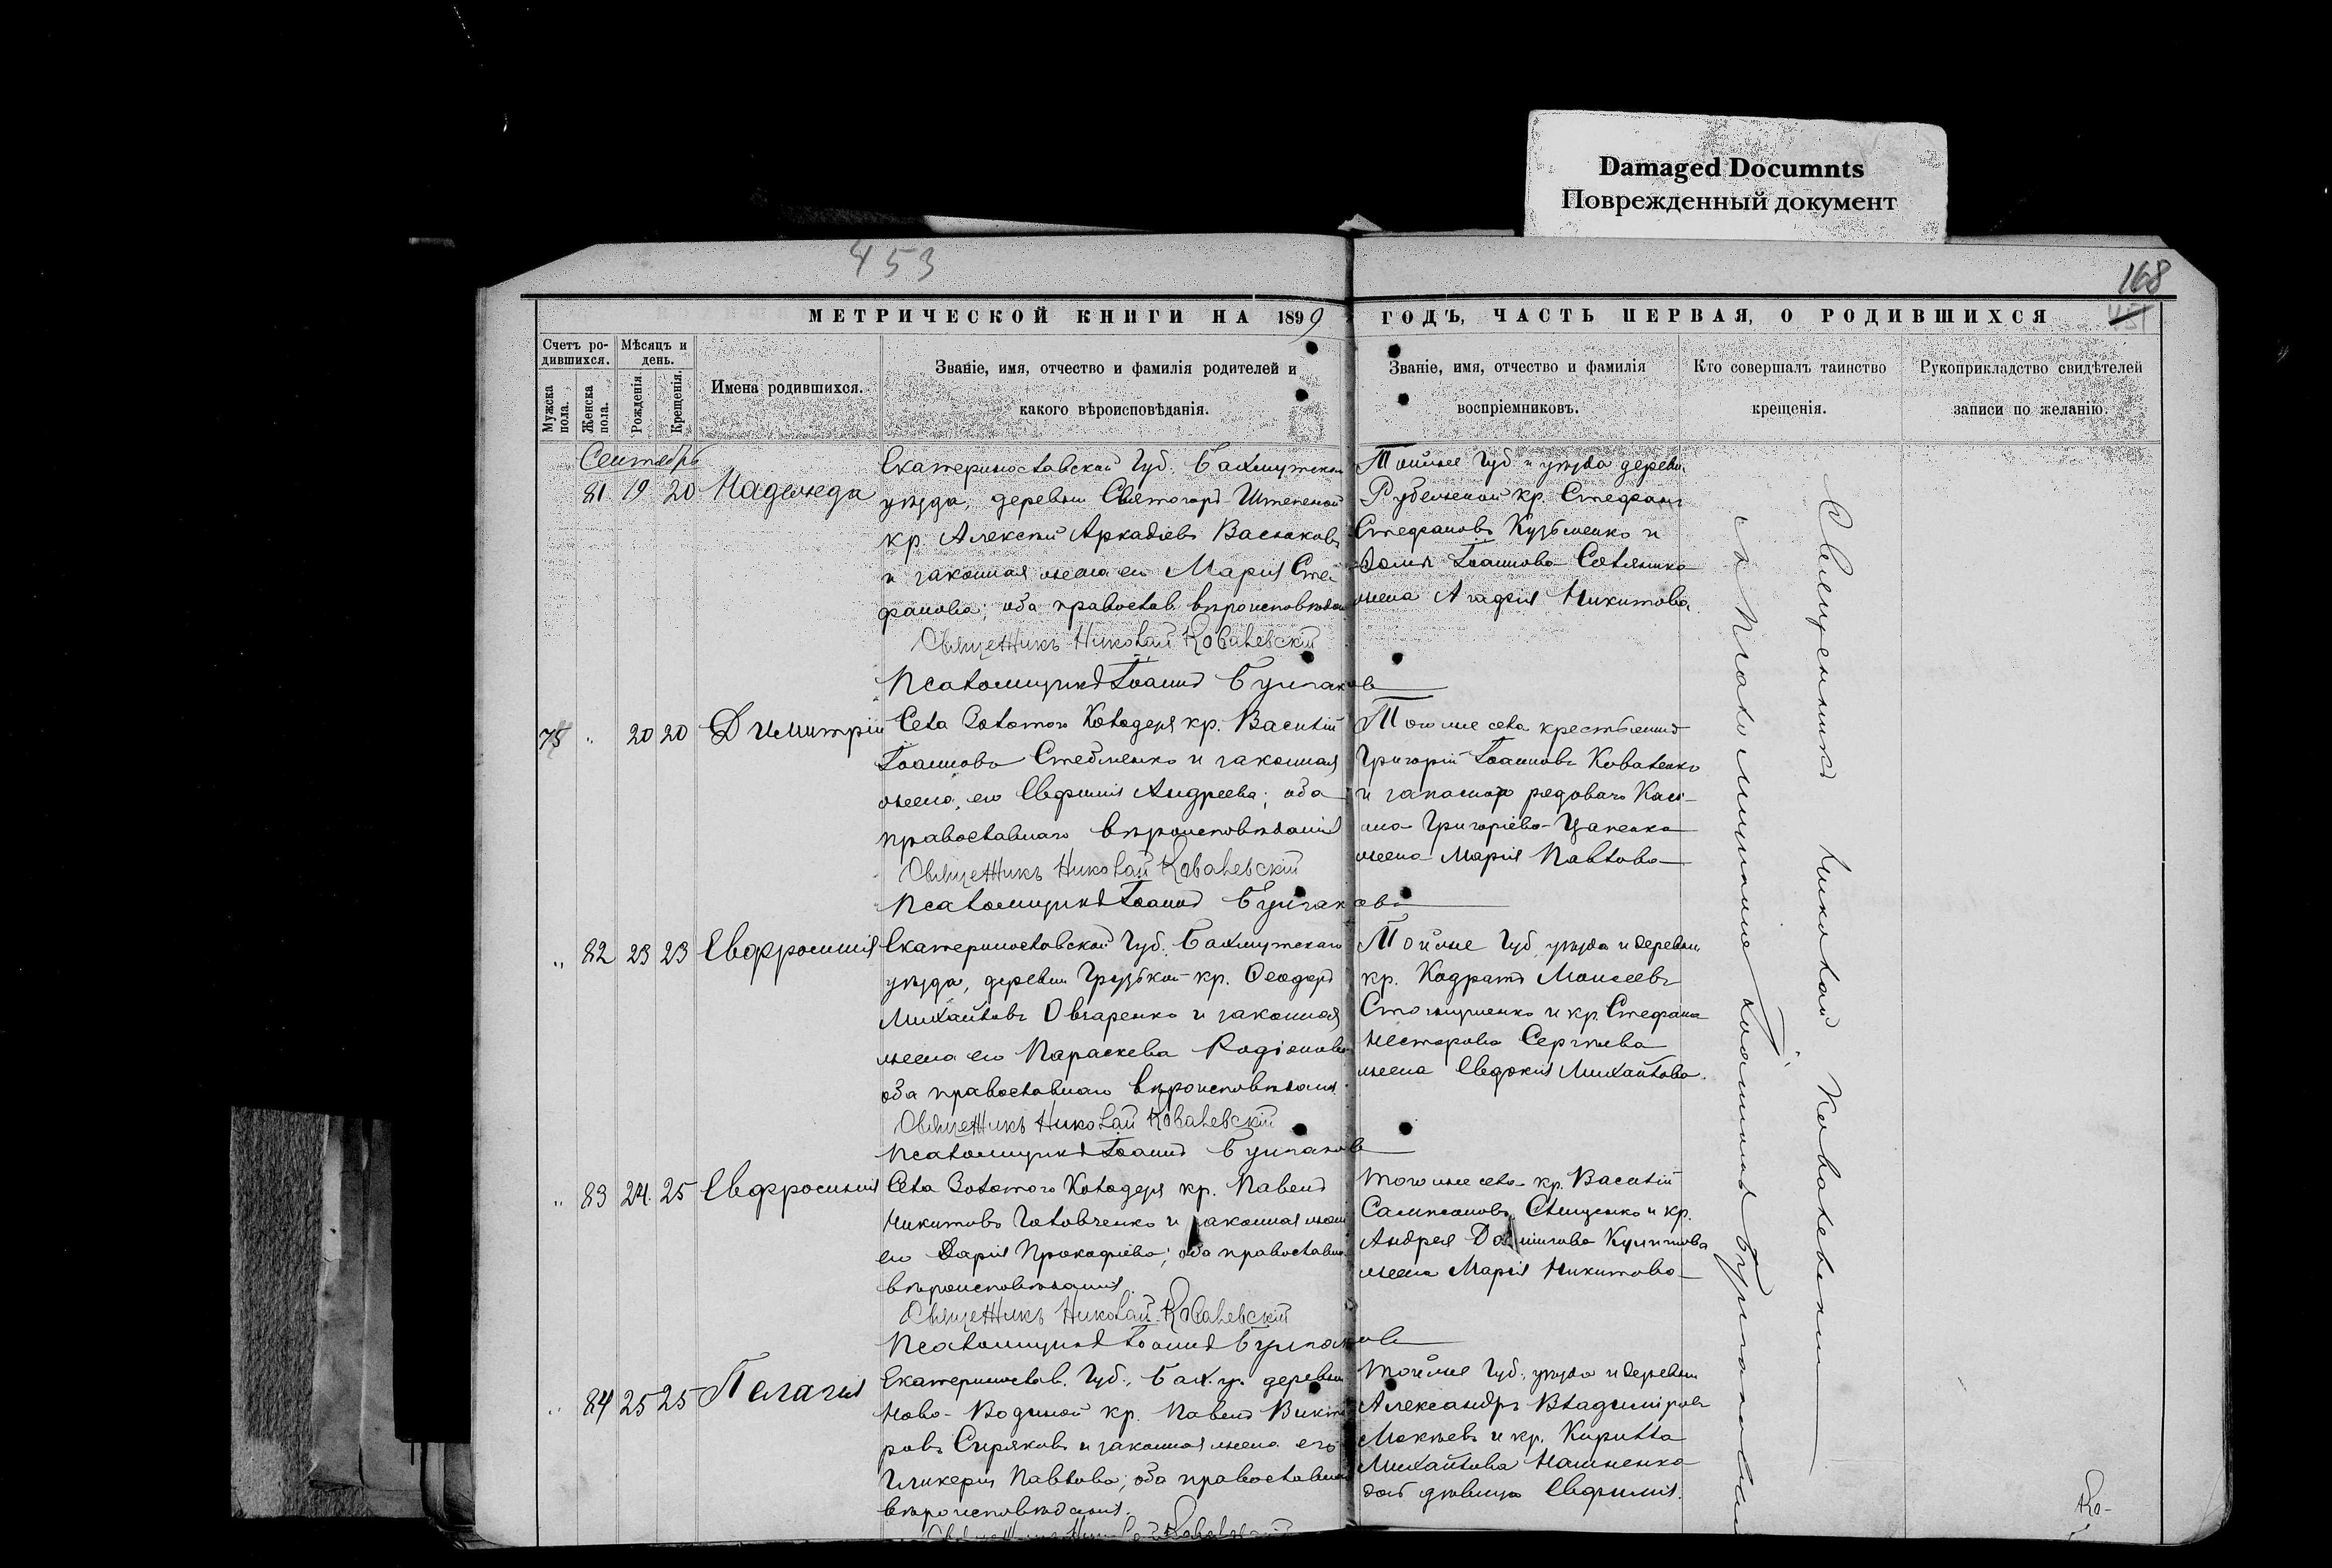 Damaged Documnts
Поврежденный документ
453
168
МЕТРИЧЕСКОЙ КНИГИ НА 1899
ГОДЪ, ЧАСТЬ ПЕРВАЯ, О РОДИВШИХСЯ
Счетъ ро-
дившихся.
Мѣсяцъ и
день.
Мужска
пола.
Женска
пола.
Рожденія.
Крещенія.
Имена родившихся.
Званіе, имя, отчество и фамилія родителей и
какого вѣроисповѣданія.
Званіе, имя, отчество и фамилія
воспріемниковъ.
Кто совершалъ таинство
крещенія.
Рукоприкладство свидѣтелей
записи по желанію.
Сентябрь
81 19 20 Надежда
Екатеринославской Губ. Бахмутскаго
уѣзда, деревни Святогор-Штепеной
кр. Алексѣй Аркадіевъ Васюковъ
и законная жена его Марія Сте-
фанова; оба православ. вѣроисповѣдан
Священникъ Николай Ковалевскій
Псаломщикъ Іоаннъ Булгаковъ
Тойже Губ. и уѣзда деревн.
Рубежной кр. Стефанъ
Стефановъ Кузьменко и
Іоаннова
жена Агафія Никитова.
78 " 20 20 Димитрій
Села Золотого Колодезя кр. Василій
Іоанновъ Стебленко и законная
жена его Евфимія Андреева; оба
православнаго вѣроисповѣданія
Священникъ Николай Ковалевскій
Псаломщикъ Іоаннъ Булгаковъ
Того же села крестьянинъ
Григорій Іоанновъ Коваленко
и запаснаго рядоваго
Григоріева Цапенка
жена Марія Павлова
" 82 23 23 Евфросинія
Екатеринославской Губ. Бахмутскаго
уѣзда, деревни Грузской кр. Ѳеодоръ
Михайловъ Овчаренко и законная
жена его Параскева Родіонова
оба православнаго вѣроисповѣданія.
Священникъ Николай Ковалевскій
Псаломщикъ Іоаннъ Булгаковъ
Тойже Губ. уѣзда и деревни
кр. Кодратъ Моисеевъ
и кр. Стефана
Несторова Сергѣева
жена Евдокія Михайлова.
" 83 24 25 Евфросинія
Села Золотого Колодезя кр. Павелъ
Никитовъ Головченко и законная жена
его Дарія Прокофіева; оба православнаго
вѣроисповѣданія
Священникъ Николай Ковалевскій
Псаломщикъ Іоаннъ Булгаковъ
Того же села кр. Василій
Сампсоновъ и кр.
Андрея
жена Марія Никитова
" 84 25 25 Пелагія
Екатеринослав. Губ., Бах. у. деревни
Ново-Водяной кр. Павелъ Викто-
ровъ Сиряковъ и законная жена его
Гликерія Павлова; оба православнаго
вѣроисповѣданія.
Священникъ Николай Ковалевскій
Тойже Губ., уѣзда и деревни
Александръ Владиміровъ
Мокѣевъ и кр. Кирилла
Михайлова
дочь дѣвица Евфимія.
Священникъ Николай Ковалевскій
съ Псаломщикомъ Іоанномъ Булгаковымъ
Ко-